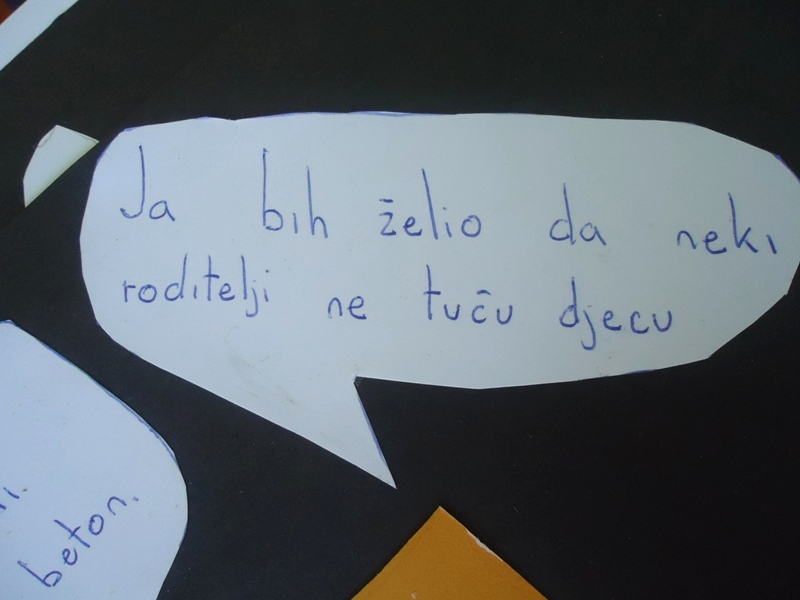 Ja bih želio da neki
roditelji ne tuču djecu
beton.